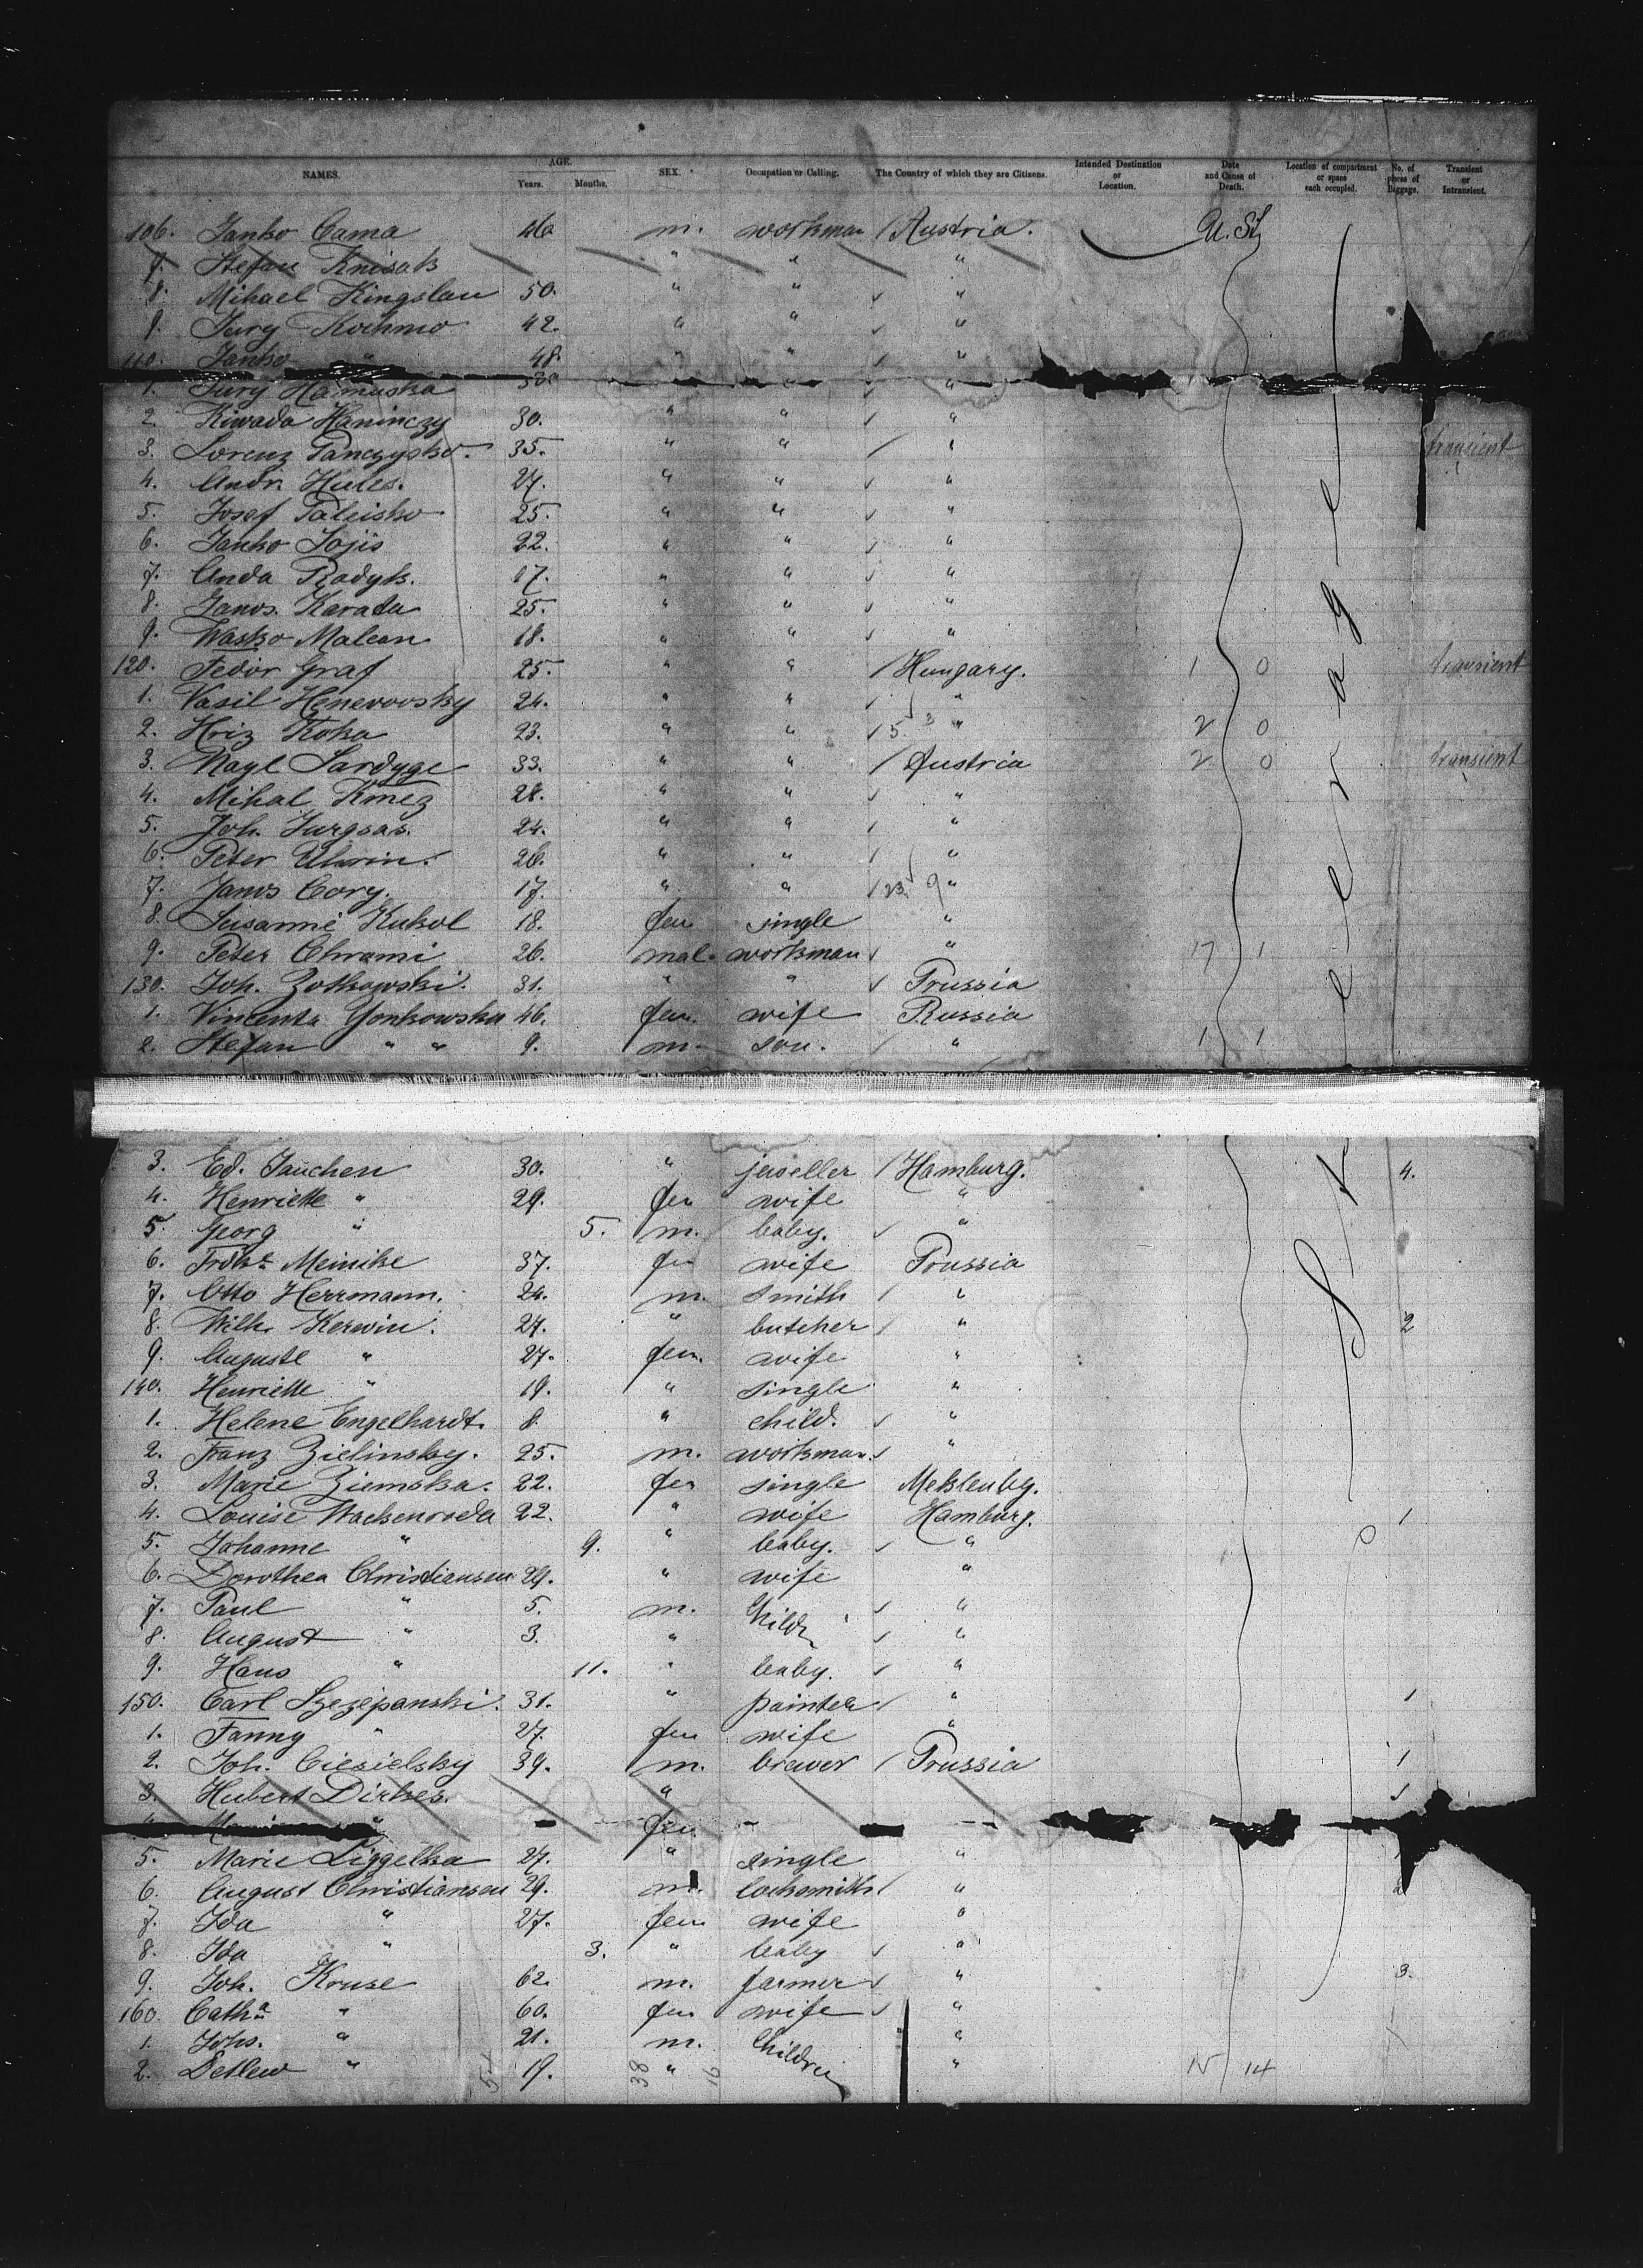 NAMES. AGE. Years. Months. SEX. Occupation or Calling. The Country of which they are Citizens. Intended Destination or Location. Date and Cause of Death. Location of compartment or space each occupied. No. of pieces of Baggage. Transient or Intransient.
106. Janko Cama 46 m. workman Austria. U. St
7. Stefan Knisak " " "
8. Mihael Kingslau 50. " " "
9. Jury Kochmo 42. " " "
110. Janko " 48. " " "
1. Jury Hamuska " "
2. Kiwada Haninczy 30. " " "
3. Lorenz Panczysko. 35. " " " transient
4. Andr. Hules. 27. " " "
5. Josef Paleisko 25. " " "
6. Janko Sojis 22. " " "
7. Anda Radyk. 17. " " "
8. Janos. Karata 25. " " "
9. Wasko Malcan 18. " " "
120. Fedor Graf 25. " " Hungary. 1 0 transient
1. Vasil Henevovsky 24. " " "
2. Hriz Koka 23. " " 5 3 " 2 0
3. Nayl Sardyge 33. " " Austria 2 0 transient
4. Mihal Kmez 28. " " "
5. Joh. Jurgsas. 24. " " "
6. Peter Uhrin. 26. " " "
7. Janos Cory. 17. " " 23 9 "
8. Susanne Kukol 18. fem single "
9. Peter Chrami 26. mal. workman " 17 1
130. Joh. Zotkowski. 31. " " Prussia
1. Vincenta Yonkowska 46. fem. wife Russia
2. Stefan " " 9. m. son. " 1 1
Steerage
3. Ed. Jauchen 30. " jeweller Hamburg. 4.
4. Henriette " 29. fem wife "
5. Georg " 5. m. baby. "
6. Frdke Meinike 37. fem wife Prussia
7. Otto Herrmann. 24. m. smith "
8. Wilh. Kerwin. 27. " butcher " 2
9. Auguste " 27. fem. wife "
140. Henriette " 19. " single "
1. Helene Engelhardt. 8 " child. "
2. Franz Zielinsky. 25. m. workman. "
3. Marie Ziemska. 22. fem single Meklenbg.
4. Louise Wackenroda 22. " wife Hamburg. 1
5. Johanne " 9. " baby. "
6. Dorothea Christiansen 29. " wife "
7. Paul " 5. m. Childr "
8. August " 3. " "
9. Hans " 11. " baby. "
150. Carl Szezepanski. 31. " painter " 1
1. Fanny " 27. fem wife "
2. Joh. Ciesielsky 39. m. brewer Prussia 1
3. Hubert Dirkes. " 1
fem
5. Marie Liggelka 27. " single "
6. August Christiansen 29. m. locksmith " 2
7. Ida " 27. fem wife "
8. Ida " 3. " baby "
9. Joh. Kruse 62. m. farmer " 3.
160. Catha " 60. fem wife "
1. Johs. " 21. m. Children "
2. Detlew " 19. " " 14
38 16